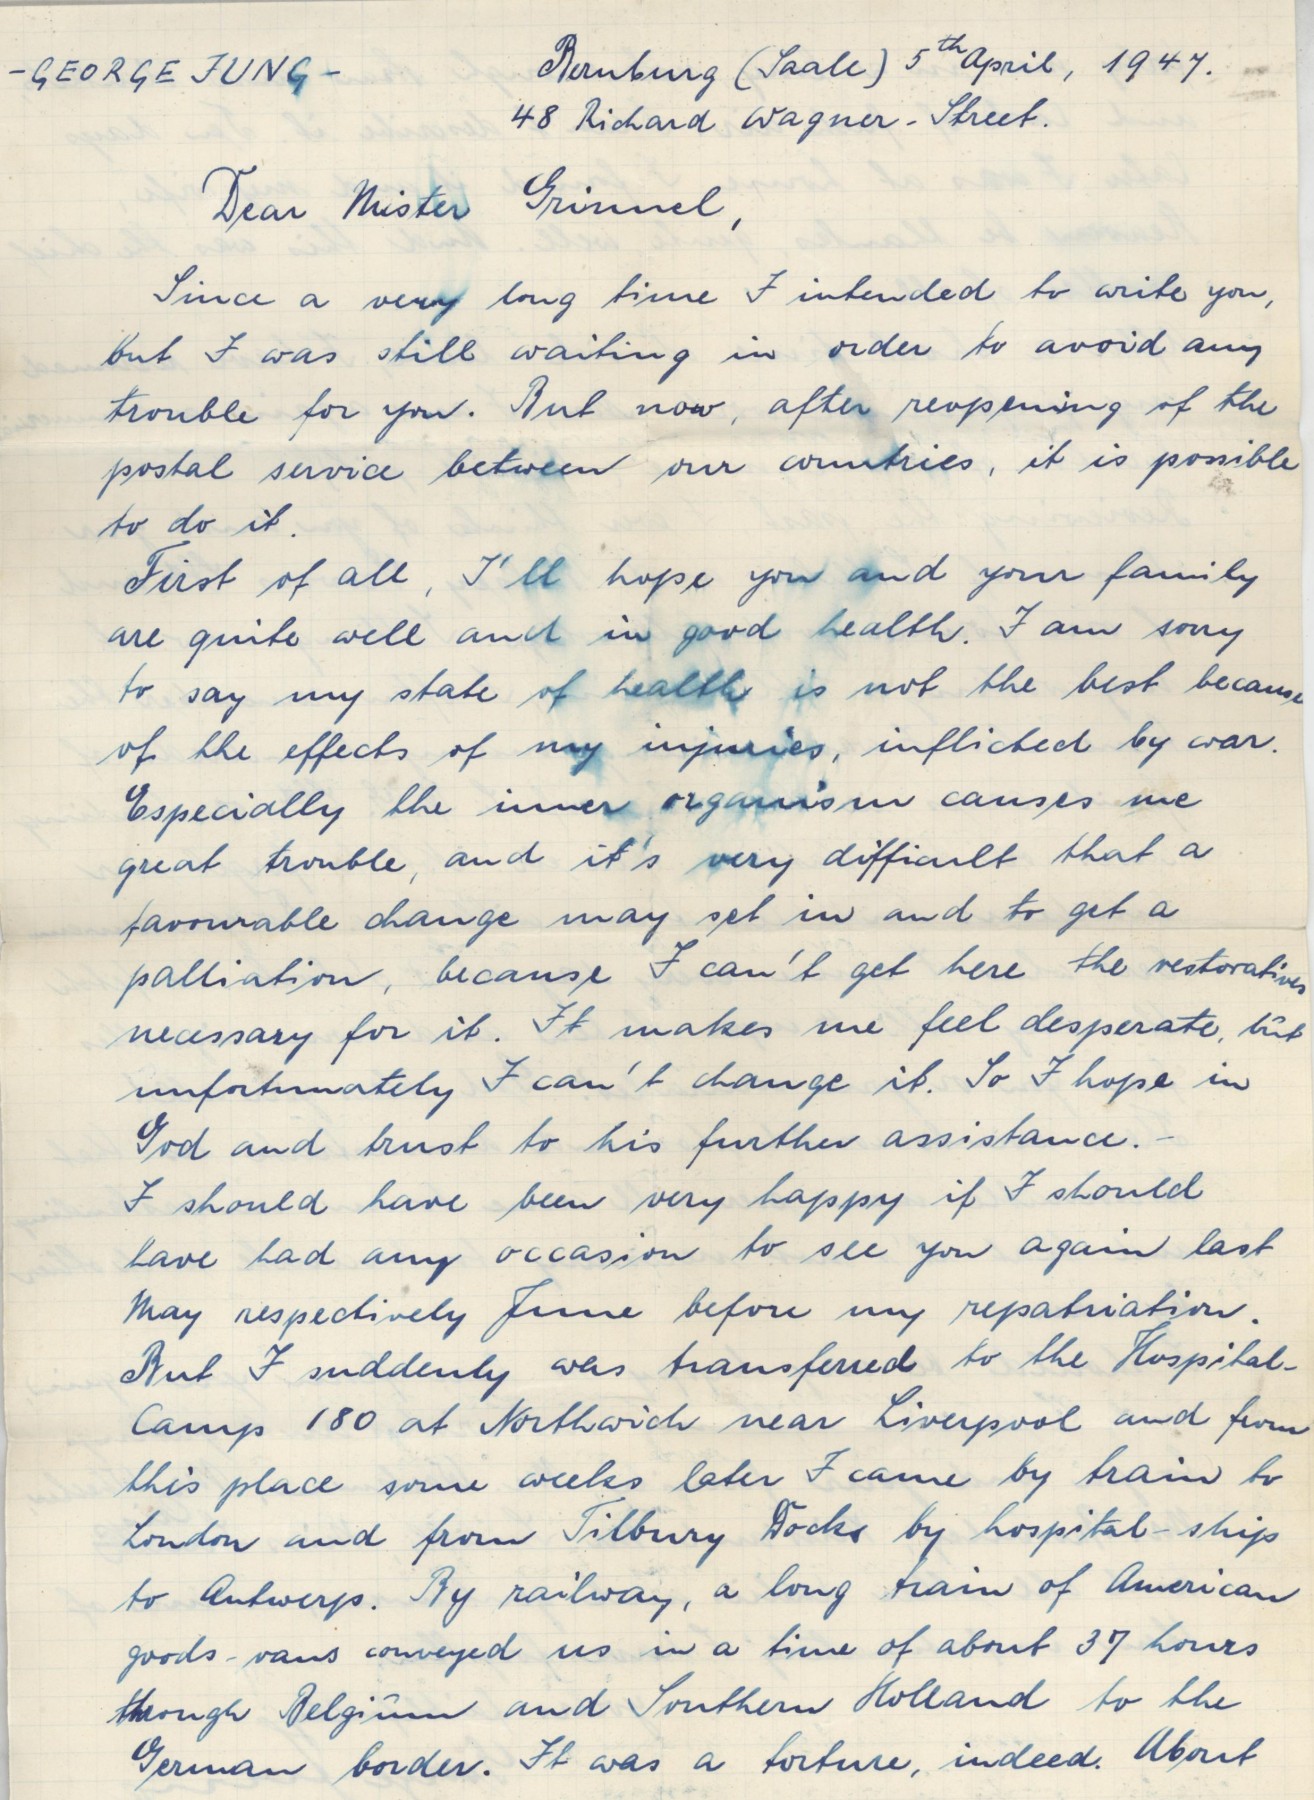 -GEORGE JUNG-
Bernburg (Saale) 5th April, 1947.
48 Richard Wagner-Street.
Dear Mister Grinnel,
Since a very long time I intended to write you,
but I was still waiting in order to avoid any
trouble for you. But now, after reopening of the
postal service between our countries, it is possible
to do it.
First of all, I'll hope you and your family
are quite well and in good health. I am sorry
to say my state of health is not the best because
of the effects of my injuries, inflicted by war.
Especially the inner organism causes me
great trouble, and it's very difficult that a
favourable change may set in and to get a
palliation, because I can't get here the restoratives
necessary for it. It makes me feel desperate, but
unfortunately I can't change it. So I hope in
God and trust to his further assistance.-
I should have been very happy if I should
have had any occasion to see you again last
May respectively June before my repatriation.
But I suddenly was transferred to the Hospital-
Camp 180 at Northwich near Liverpool and from
this place some weeks later I came by train to
London and from Tilbury Docks by hospital-ship
to Antwerp. By railway, a long train of American
goods-vans conveyed us in a time of about 37 hours
through Belgium and Southern Holland to the
German border. It was a torture, indeed. About